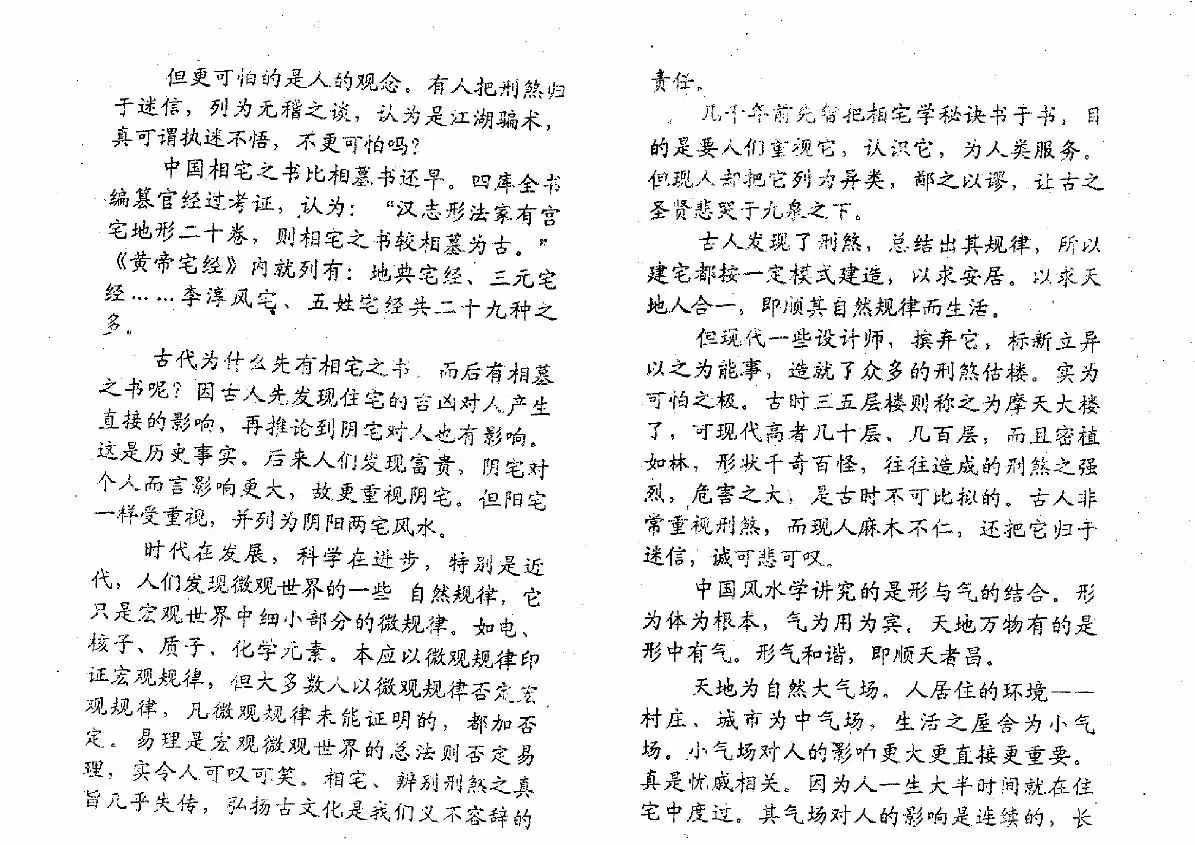 但更可怕的是人的观念。有人把刑煞归
于迷信，列为无稽之谈，认为是江湖骗术，
真可谓执迷不悟，不更可怕吗？
中国相宅之书比相墓书还早。四库全书
编纂官经过考证，认为：“汉志形法家有宫
宅地形二十卷，则相宅之书较相墓为古。”
《黄帝宅经》内就列有：地典宅经、三元宅
经……李淳风宅、五姓宅经共二十九种之
多。
古代为什么先有相宅之书，而后有相墓
之书呢？因古人先发现住宅的吉凶对人产生
直接的影响，再推论到阴宅对人也有影响。
这是历史事实。后来人们发现富贵，阴宅对
个人而言影响更大，故更重视阴宅。但阳宅
一样受重视，并列为阴阳两宅风水。
时代在发展，科学在进步，特别是近
代，人们发现微观世界的一些 自然规律，它
只是宏观世界中细小部分的微规律。如电、
核子、质子、化学元素。本应以微观规律印
证宏观规律，但大多数人以微观规律否定宏
观规律，凡微观规律未能证明的，都加否
定。易理是宏观微观世界的总法则否定易
理，实令人可叹可笑。相宅、辨别刑煞之真
旨几乎失传，弘扬古文化是我们义不容辞的
责任。
几千年前先智把相宅学秘诀书于书，目
的是要人们重视它，认识它，为人类服务。
但现人却把它列为异类，鄙之以谬，让古之
圣贤悲哭于九泉之下。
古人发现了刑煞，总结出其规律，所以
建宅都按一定模式建造，以求安居。以求天
地人合一，即顺其自然规律而生活。
但现代一些设计师，摈弃它，标新立异
以之为能事，造就了众多的刑煞估楼。实为
可怕之极。古时三五层楼则称之为摩天大楼
了，可现代高者几十层、几百层，而且密植
如林，形状千奇百怪，往往造成的刑煞之强
烈，危害之大，是古时不可比拟的。古人非
常重视刑煞，而现人麻木不仁，还把它归于
迷信，诚可悲可叹。
中国风水学讲究的是形与气的结合。形
为体为根本，气为用为宾。天地万物有的是
形中有气。形气和谐，即顺天者昌。
天地为自然大气场。人居住的环境——
村庄、城市为中气场，生活之屋舍为小气
场。小气场对人的影响更大更直接更重要。
真是忧戚相关。因为人一生大半时间就在住
宅中度过。其气场对人的影响是连续的，长